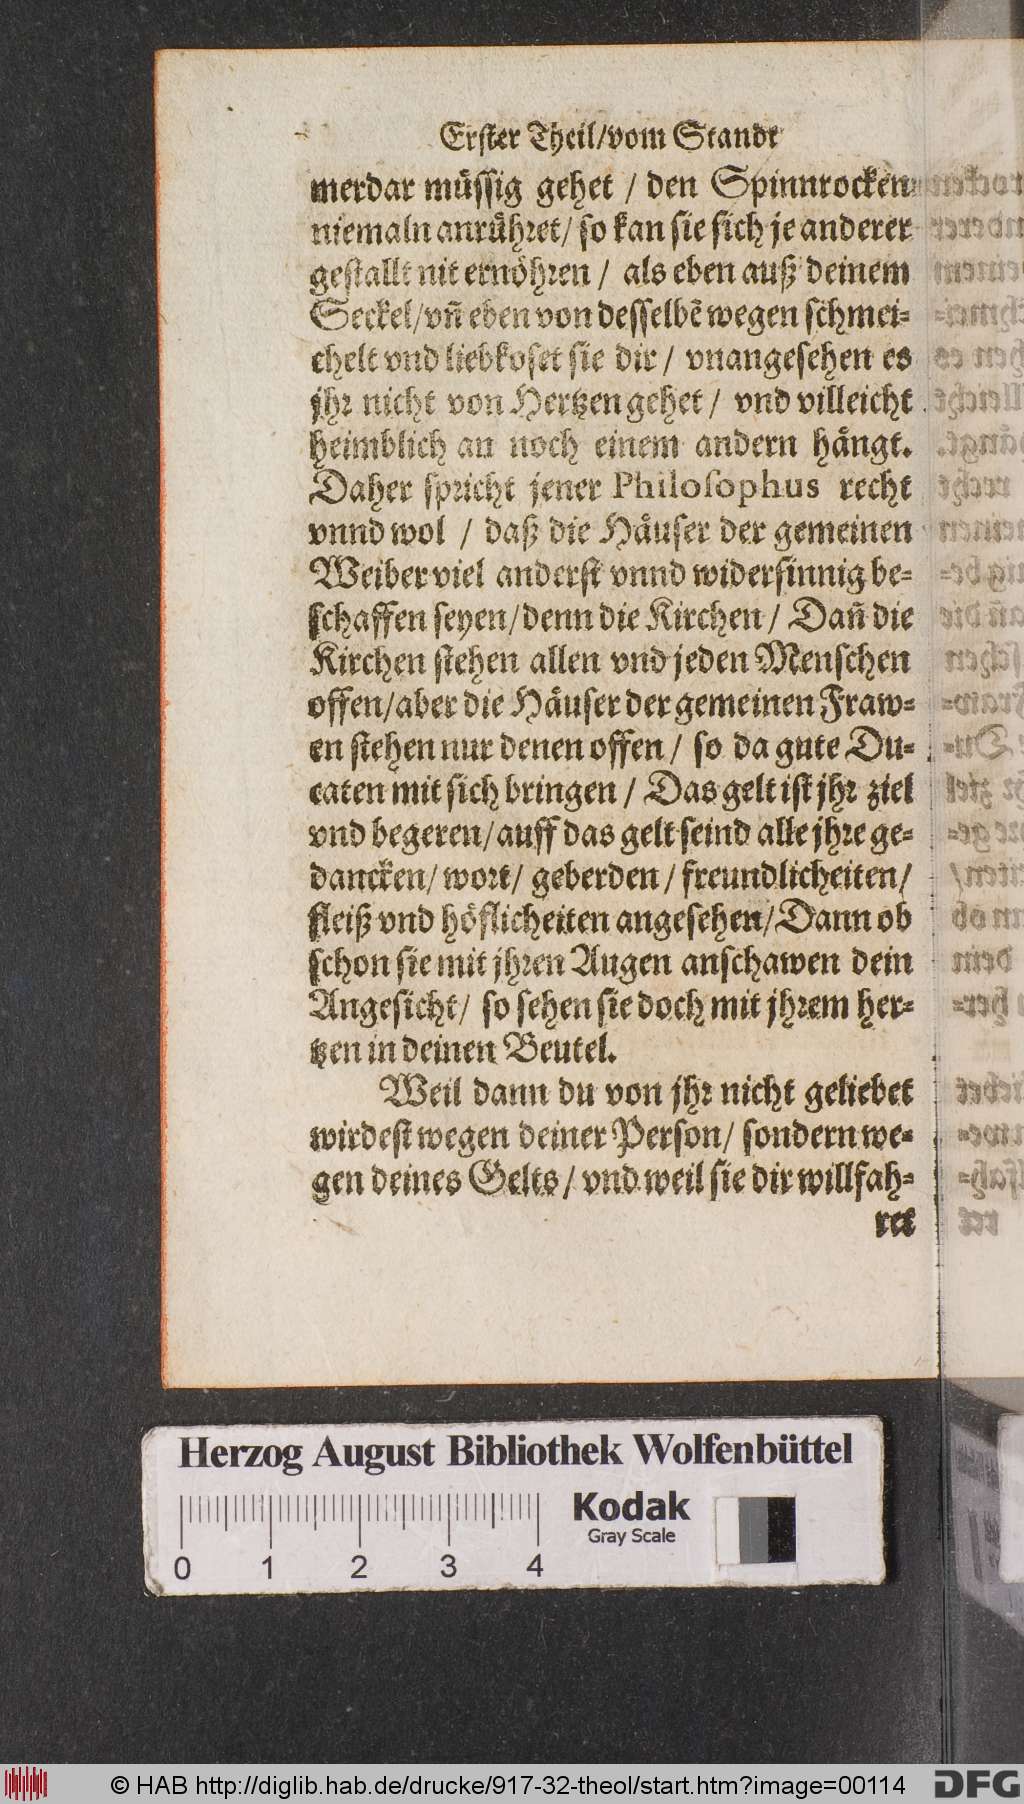 Erster Theil/vom Standt
merdar müssig gehet / den Spinnrocken
niemaln anrühret/ so kan sie sich je anderer
gestallt nit ernöhren / als eben auß deinem
Seckel/vñ eben von desselbẽ wegen schmei-
chelt vnd liebkoset sie dir / vnangesehen es
jhr nicht von Hertzen gehet / vnd villeicht
heimblich an noch einem andern hängt.
Daher spricht jener Philosophus recht
vnnd wol / daß die Häuser der gemeinen
Weiber viel anderst vnnd widersinnig be-
schaffen seyen/denn die Kirchen / Dañ die
Kirchen stehen allen vnd jeden Menschen
offen/aber die Häuser der gemeinen Fraw-
en stehen nur denen offen / so da gute Du-
caten mit sich bringen / Das gelt ist jhr ziel
vnd begeren/auff das gelt seind alle jhre ge-
dancken/ wort/ geberden / freundlicheiten/
fleiß vnd höflicheiten angesehen/Dann ob
schon sie mit jhren Augen anschawen dein
Angesicht/ so sehen sie doch mit jhrem her-
tzen in deinen Beutel.
Weil dann du von jhr nicht geliebet
wirdest wegen deiner Person/ sondern we-
gen deines Gelts / vnd weil sie dir willfah-
ret
Herzog August Bibliothek Wolfenbüttel
Kodak
Gray Scale
0 1 2 3 4
© HAB http://diglib.hab.de/drucke/917-32-theol/start.htm?image=00114
DFG